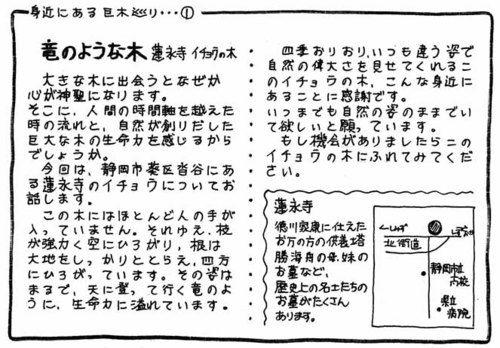 身近にある巨木巡り・・・①
竜のような木 蓮永寺 イチョウの木
大きな木に出会うとなぜか
心が神聖になります。
そこに、人間の時間軸を越えた
時の流れと、自然が創りだした
巨大な木の生命力を感じるから
でしょうか。
今回は、静岡市葵区沓谷にあ
る蓮永寺のイチョウについてお
話します。
この木にはほとんど人の手が
入っていません。それゆえ、枝
が強力く空にひろがり、根は
大地をしっかりととらえ、四方
にひろがっています。その姿は
まるで、天に登って行く竜のよ
うに、生命力に溢れています。
四季おりおり、いつも違う姿で
自然の偉大さを見せてくれるこ
のイチョウの木、こんな身近に
あることに感謝です。
いつまでも自然の姿のままでい
て欲しいと願っています。
もし機会がありましたらこの
イチョウの木にふれてみてくだ
さい。
蓮永寺
徳川家康に仕えた
お万の方の供養塔
勝海舟の母妹の
お墓など、
歴史上の名士たちの
お墓がたくさん
あります。
北街道
静岡市立
高校
県立
病院